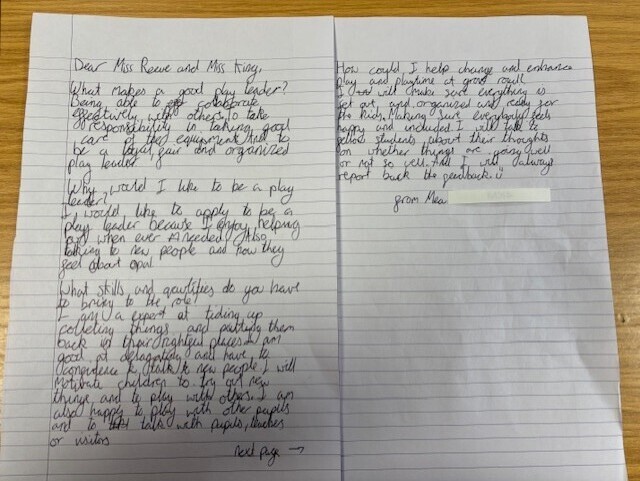 Dear Miss Reeve and Miss King,
What makes a good play leader?
Being able to collaborate
effectively with others, To take
responsibility in taking good
care of the equipment. And to
be a loyal, fair and organized
play leader.
Why would I like to be a play
leader?
I would like to apply to be a
play leader because I enjoy helping
out when ever needed. Also
talking to new people and how they
feel about opal
What skills and qualifies do you have
to bring to the role?
I am a expert at tiding up
collecting things and putting them
back in their rightful places. I am
good at delagating and have to
confidence to talk to new people. I will
motivate children to try out new
things and to play with others. I am
also happy to play with other pupils
and to talk with pupils, teaches
or visitors
next page →
How could I help change and enhance
play and playtime at grove road?
I will make sure everything is
set out, and organized and ready for
the kids. Making sure everybody feels
happy and included. I will talk to
fellow students about their thoughts
on whether things are going well
or not so well. And I will always
report back the feedback.
from Mea